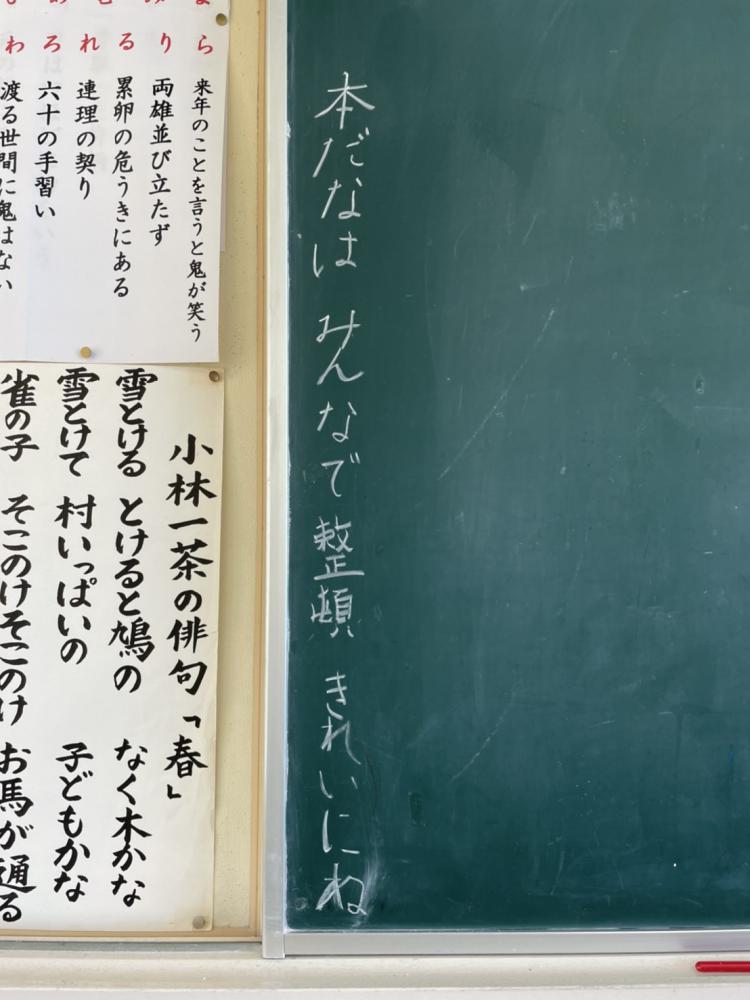 本だなは みんなで 整頓 きれいにね
ら 来年のことを言うと鬼が笑う
り 両雄並び立たず
る 累卵の危うきにある
れ 連理の契り
ろ 六十の手習い
わ 渡る世間に鬼はない
小林一茶の俳句「春」
雪とける とけると鳩の なく木かな
雪とけて 村いっぱいの 子どもかな
雀の子 そこのけそこのけ お馬が通る